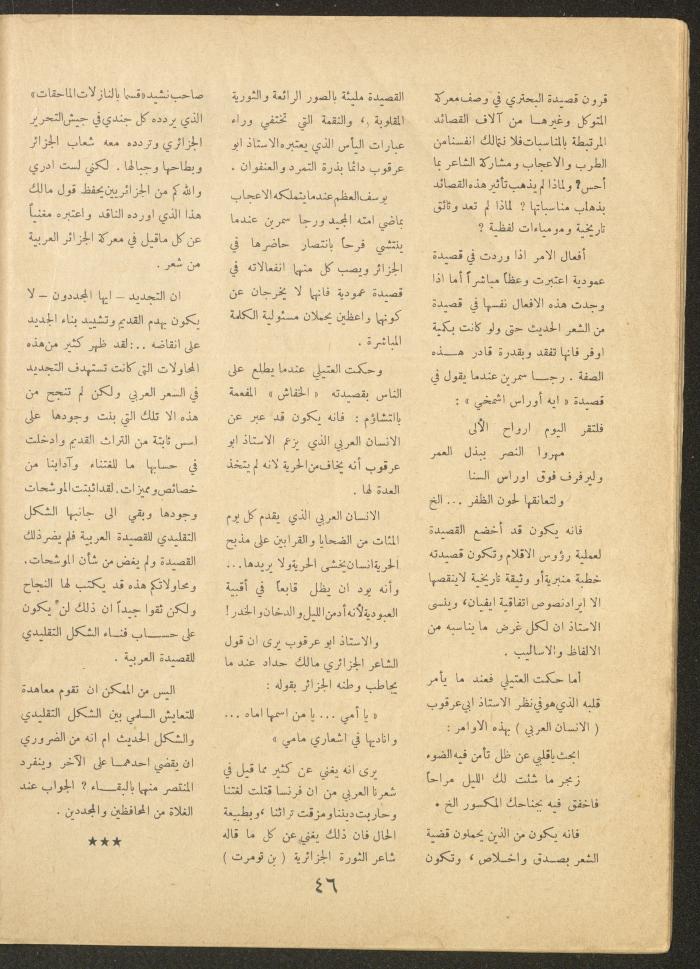 قرون قصيدة البحتري في وصف معركة
المتوكل وغيرها من آلاف القصائد
المرتبطة بالمناسبات فلا نتمالك انفسنا من
الطرب والاعجاب ومشاركة الشاعر بما
أحس؟ ولماذا لم يذهب تأثير هذه القصائد
بذهاب مناسباتها ؟ لماذا لم تعد وثائق
تاريخية ومومياءات لفظية ؟
أفعال الامر اذا وردت في قصيدة
عمودية اعتبرت وعظاً مباشراً أما اذا
وجدت هذه الافعال نفسها في قصيدة
من الشعر الحديث حتى ولو كانت بكمية
اوفر فانها تفقد وبقدرة قادر هذه
الصفة . رجا سمرين عندما يقول في
قصيدة « ايه أوراس اشمخي » :
فلتقر اليوم ارواح الألى
مهروا النصر ببذل العمر
وليرفرف فوق اوراس السنا
ولتعانقها لحون الظفر ... الخ
فانه يكون قد أخضع القصيدة
لعملية رؤوس الاقلام وتكون قصيدته
خطبة منبرية أو وثيقة تاريخية لاينقصها
الا ايراد نصوص اتفاقية ايفيان، وينسى
الاستاذ ان لكل غرض ما يناسبه من
الالفاظ والاساليب .
أما حكت العتيلي فعند ما يأمر
قلبه الذي هو في نظر الاستاذ ابي عرقوب
( الانسان العربي ) بهذه الاوامر :
ابحث ياقلبي عن ظل تأمن فيه الضوء
زمجر ما شئت لك الليل مراحاً
فاخفق فيه بجناحك المكسور الخ .
فانه يكون من الذين يحملون قضية
الشعر بصدق واخلاص ، وتكون
القصيدة مليئة بالصور الرائعة والثورية
المقلوبة ، والنقمة التي تختفي وراء
عبارات اليأس الذي يعتبره الاستاذ ابو
عرقوب دائما بذرة التمرد والعنفوان .
يوسف العظم عندما يتملكه الاعجاب
بماضي امته المجيد ورجا سمرين عندما
ينتشي فرحاً بانتصار حاضرها في
الجزائر ويصب كل منهما انفعالاته في
قصيدة عمودية فانها لا يخرجان عن
كونها واعظين يحملان مسئولية الكلمة
المباشرة .
وحكت العتيلي عندما يطلع على
الناس بقصيدته « الخفاش » المفعمة
بالتشاؤم : فانه يكون قد عبر عن
الانسان العربي الذي يزعم الاستاذ ابو
عرقوب أنه يخاف من الحرية لانه لم يتخذ
العدة لها .
الانسان العربي الذي يقدم كل يوم
المئات من الضحايا والقرابين على مذبح
الحرية انسان يخشى الحرية ولا يريدها...
وأنه يود ان يظل قابعاً في أقبية
العبودية لأنه أدمن الليل والدخان والخدر !
والاستاذ ابو عرقوب يرى ان قول
الشاعر الجزائري مالك حداد عند ما
يجاطب وطنه الجزائر بقوله :
« يا أمي ... يا من اسمها اماه ...
واناديها في اشعاري مامي »
يرى انه يغني عن كثير مما قيل في
شعرنا العربي من ان فرنسا قتلت لغتنا
وحاربت ديننا ومزقت تراثنا ، وبطبيعة
الحال فان ذلك يغني عن كل ما قاله
شاعر الثورة الجزائرية ( بن تومرت )
صاحب نشيد «قسما بالنازلات الماحقات»
الذي يردده كل جندي في جيش التحرير
الجزائري وتردده معه شعاب الجزائر
وبطاحها وجبالها . لكني لست ادري
والله كم من الجزائريين يحفظ قول مالك
هذا الذي اورده الناقد واعتبره مغنياً
عن كل ماقيل في معركة الجزائر العربية
من شعر .
ان التجديد – ايها المجددون – لا
يكون بهدم القديم وتشييد بناء الجديد
على انقاضه ..: لقد ظهر كثير من هذه
المحاولات التي كانت تستهدف التجديد
في السعر العربي ولكن لم تنجح من
هذه الا تلك التي بنت وجودها على
اسس ثابتة من التراث القديم وأدخلت
في حسابها ما للغتناء وآدابنا من
خصائص ومميزات. لقد اثبتت الموشحات
وجودها وبقي الى جانبها الشكل
التقليدي للقصيدة العربية فلم يضر ذلك
القصيدة ولم يغض من شأن الموشحات.
ومحاولاتكم هذه قد يكتب لها النجاح
ولكن ثقوا جيداً ان ذلك لن يكون
على حساب فناء الشكل التقليدي
للقصيدة العربية .
اليس من الممكن ان تقوم معاهدة
للتعايش السلمي بين الشكل التقليدي
والشكل الحديث ام انه من الضروري
ان يقضي احدهما على الآخر وينفرد
المنتصر منهما بالبقاء ؟ الجواب عند
الغلاة من المحافظين والمجددين .
★★★
٤٦